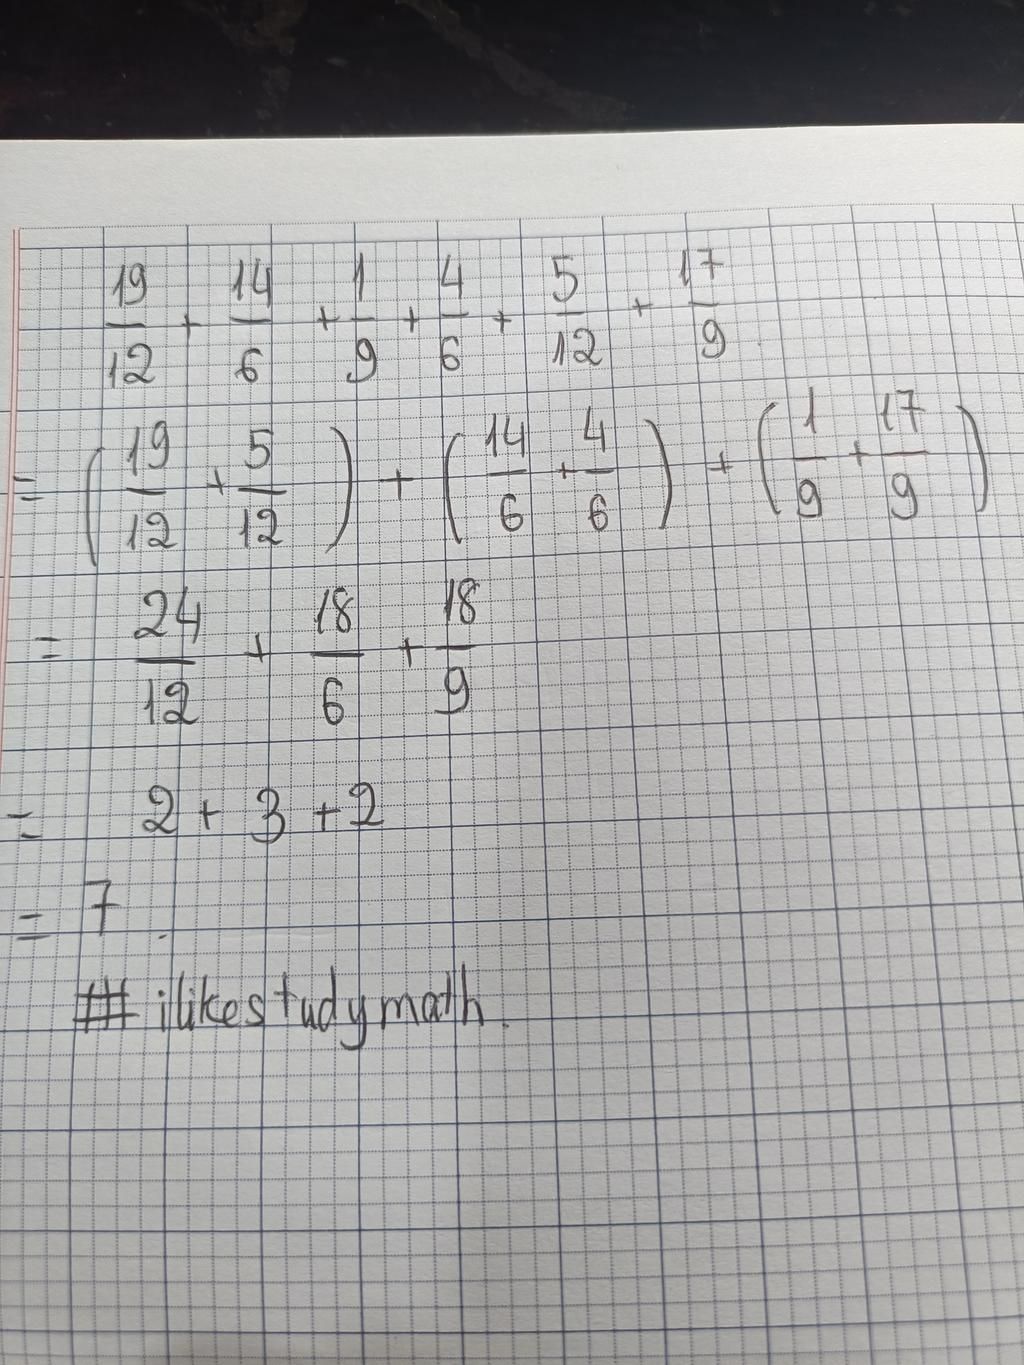 19/12 + 14/6 + 1/9 + 4/6 + 5/12 + 17/9
= (19/12 + 5/12) + (14/6 + 4/6) + (1/9 + 17/9)
= 24/12 + 18/6 + 18/9
= 2 + 3 + 2
= 7.
# ilikestudymath.